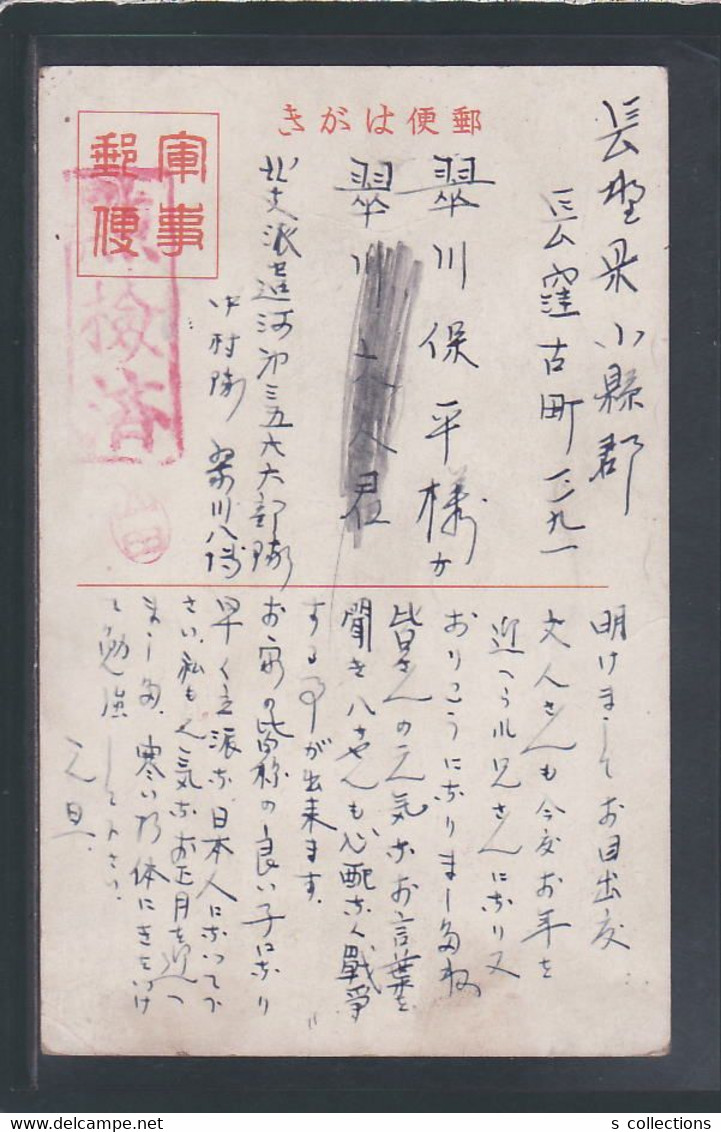 郵便はがき
軍事
郵便
検済
長野県小縣郡
長窪古町一二九一
翠川保平様方
翠川文人君
北支派遣河第三五六六部隊
中村隊
明けましてお目出度
文人さんも今度お年を
迎へうれ兄さんになり又
おりこうになりましたね
皆さんの元気なお言葉を
聞き八ちやんも心配なく戰爭
する事が出来ます。
お家の皆様の良い子になり
早く立派な日本人になつて下
さい。私も元気なお正月を迎へ
ました。寒い折体にきをつけ
て勉強して下さい。
元旦
s collections